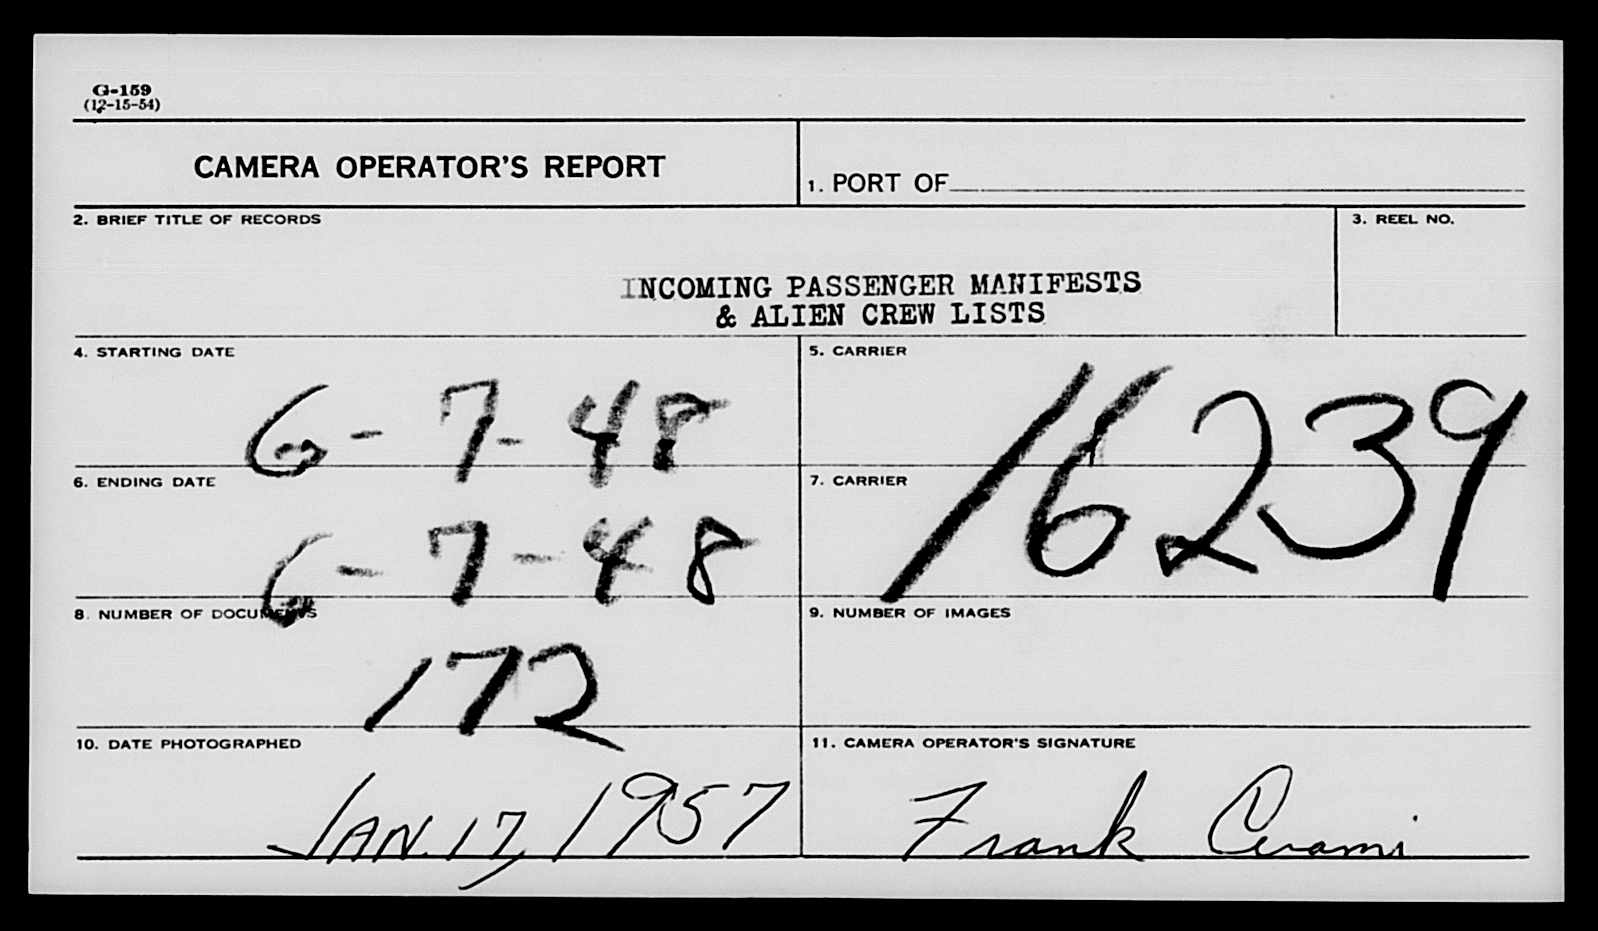 G-159
(12-15-54)
CAMERA OPERATOR'S REPORT
1. PORT OF
2. BRIEF TITLE OF RECORDS
3. REEL NO.
INCOMING PASSENGER MANIFESTS
& ALIEN CREW LISTS
4. STARTING DATE
6-7-48
5. CARRIER
16239
6. ENDING DATE
6-7-48
7. CARRIER
8. NUMBER OF DOCUMENTS
172
9. NUMBER OF IMAGES
10. DATE PHOTOGRAPHED
JAN. 17, 1957
11. CAMERA OPERATOR'S SIGNATURE
Frank Cerami